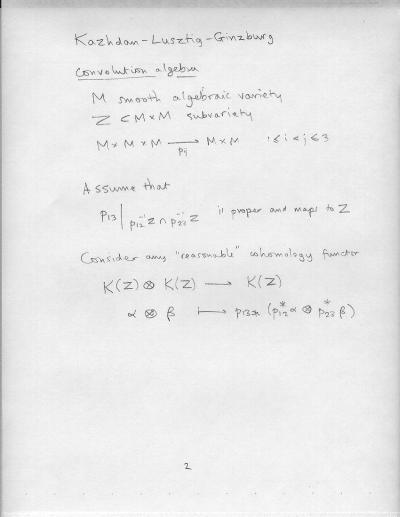 Kazhdan-Lusztig-Ginzburg
convolution algebra
M smooth algebraic variety
Z ⊂ M × M subvariety
M × M × M ⟶ M × M 1 ≤ i < j ≤ 3
p_ij
Assume that
p_13 | p_12^-1 Z ∩ p_23^-1 Z is proper and maps to Z
Consider any "reasonable" cohomology functor
K(Z) ⊗ K(Z) ⟶ K(Z)
α ⊗ β ⟼ p_13* (p_12^* α ⊗ p_23^* β)
2